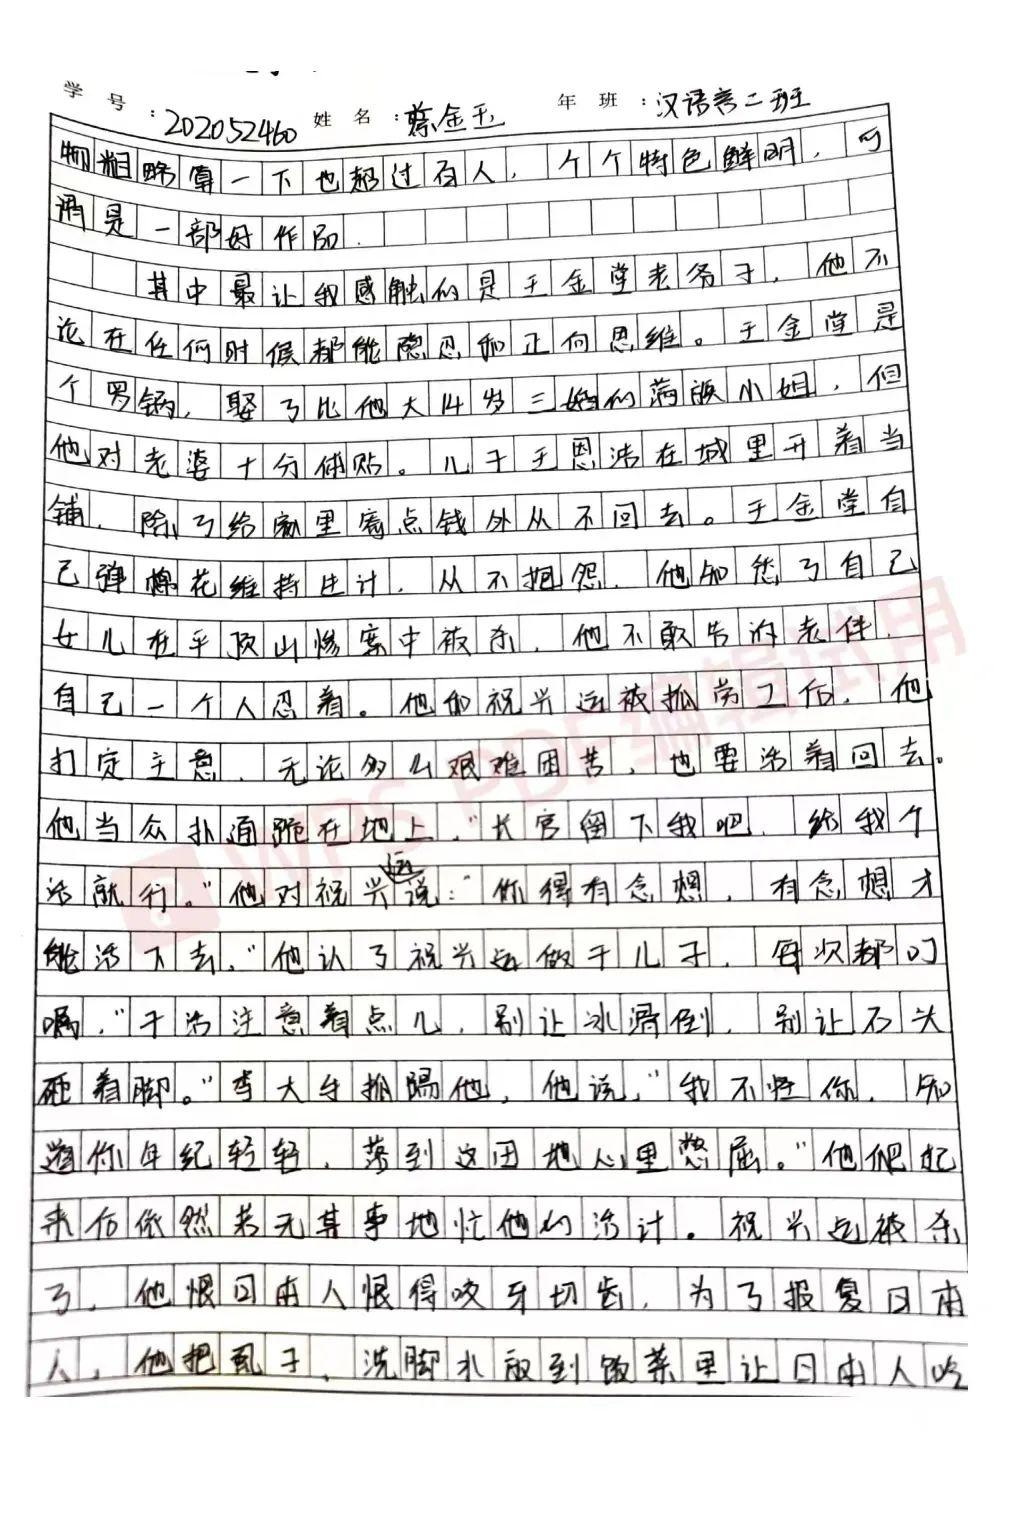 学号：202052460 姓名：蔡金玉 年班：汉语言二班
物粗略算一下也超过百人，个个特色鲜明，可
谓是一部好作品.
其中最让我感触的是王金堂老爷子，他不
论在任何时候都能隐忍和正向思维。王金堂是
个罗锅，娶了比他大14岁三婚的满族小姐，但
他对老婆十分体贴。儿子王恩浩在城里开着当
铺，除了给家里寄点钱外从不回去。王金堂自
己弹棉花维持生计，从不抱怨，他知悉了自己
女儿在平顶山惨案中被杀，他不敢告的老伴，
自己一个人忍着。他和祝兴运被抓劳工后，他
打定主意，无论多么艰难困苦，也要活着回去。
他当众扑通跪在地上，"长官留下我吧，给我个
活就行。"他对祝兴运说："你得有念想，有念想才
能活下去，"他认了祝兴运做干儿子，每次都叮
嘱，"干活注意着点儿，别让冰滑倒，别让石头
砸着脚。"李大年抓隔他，他说，"我不怪你，知
道你年纪轻轻，落到这田地心里憋屈。"他爬起
来后依然若无其事地忙他的活计。祝兴运被杀
了，他恨日本人恨得咬牙切齿，为了报复日本
人，他把虱子、洗脚水放到饭菜里让日本人吃
WPS PDF编辑试用